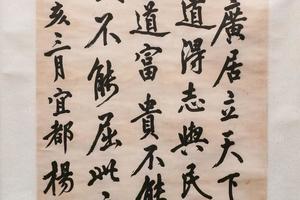 廣居立天下
道得志與民
道富貴不能
不能屈此
亥三月宜都楊